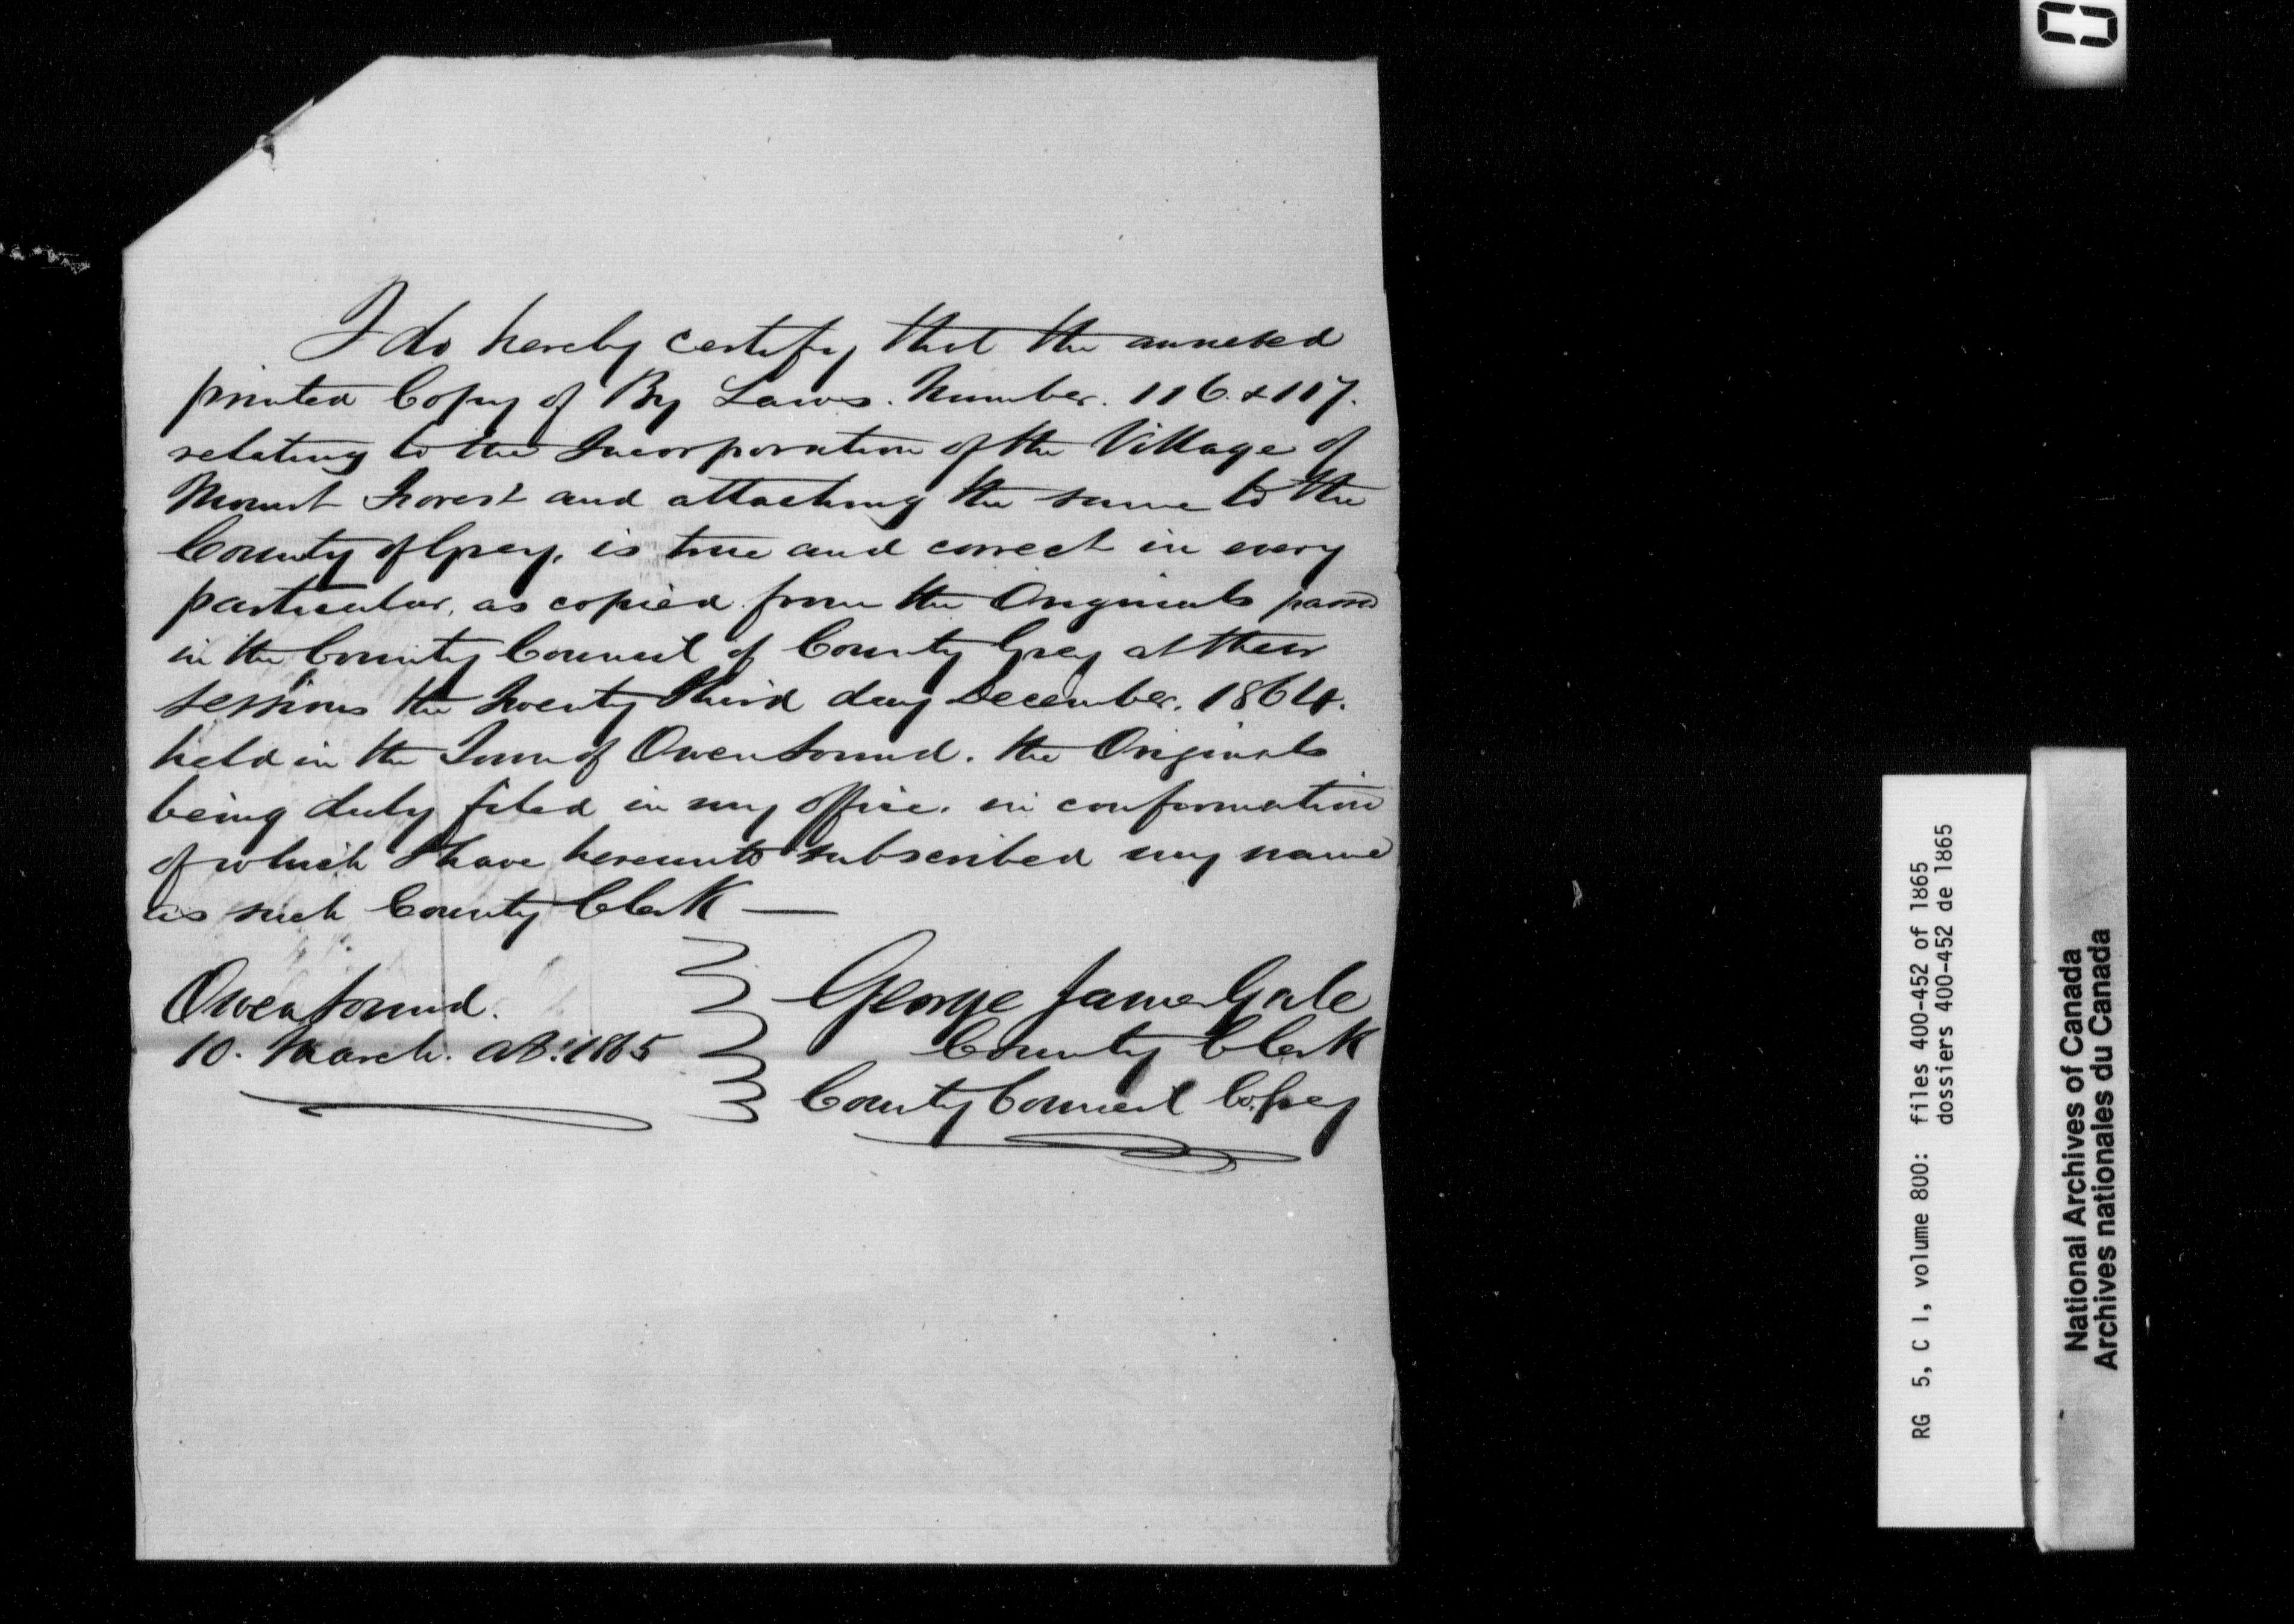 I do hereby certify that the annexed
printed Copy of By Laws. Number. 116. & 117.
relating to the Incorporation of the Village of
Mount Forest and attaching the same to the
County of Grey, is true and correct in every
particular, as copied from the Originals passed
in the County Council of County Grey at their
sessions the twenty third day December. 1864.
held in the Town of Owen Sound. the Originals
being duly filed in my office. in conformation
of which I have hereunto subscribed my name
as such County Clerk —
Owen Sound.
10. March. AD: 1865
George James Gale
County Clerk
County Council Co. Grey
RG 5, C 1, volume 800: files 400-452 of 1865
dossiers 400-452 de 1865
National Archives of Canada
Archives nationales du Canada